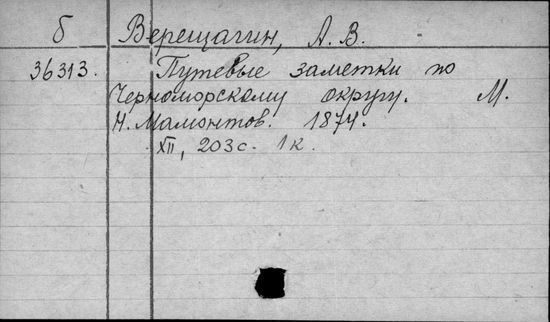 б Верещагин, А. В.
36313. Путевые заметки по
Черноморскому округу. М.
Н. Мамонтов. 1874.
XII, 203 с. 1 к.